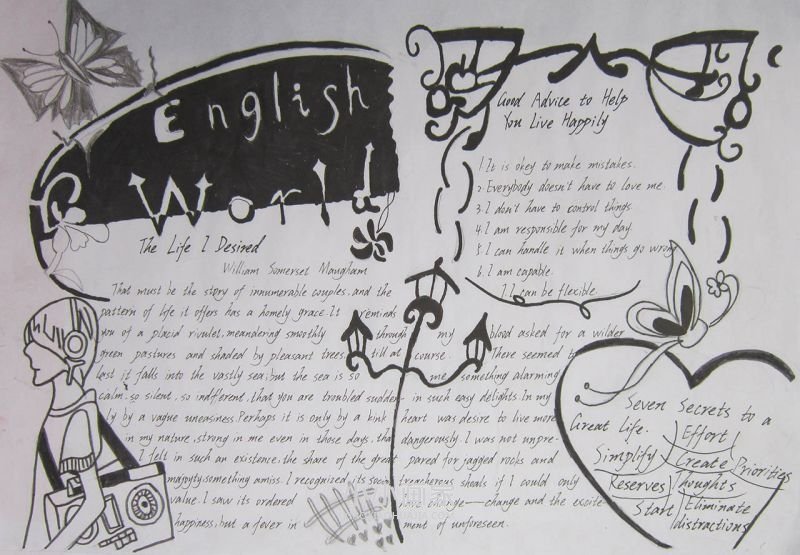 English
World
The Life I Desired
William Somerset Maugham
That must be the story of innumerable couples, and the
pattern of life it offers has a homely grace. It reminds
you of a placid rivulet, meandering smoothly through
green pastures and shaded by pleasant trees, till at
last it falls into the vastly sea; but the sea is so
calm, so silent, so indfferent, that you are troubled sudden-
ly by a vague uneasiness. Perhaps it is only by a kink
in my nature, strong in me even in those days, that
I felt in such an existence, the share of the great
majoyty, something amiss. I recognized its social
value. I saw its ordered
happiness, but a fever in
my blood asked for a wilder
course. There seemed to
me something alarming
in such easy delights. In my
heart was desire to live more
dangerously. I was not unpre-
pared for jagged rocks and
treacherous shoals if I could only
have change—change and the excite-
ment of unforeseen.
Good Advice to Help
You Live Happily
1. It is okey to make mistakes.
2. Everybody doesn't have to love me.
3. I don't have to control things.
4. I am responsible for my day.
5. I can handle it when things go wrong
6. I am capable.
7. I can be flexible.
Seven Secrets to a
Great Life.
Effort
Simplify
Create Priorities
Reserves
Thoughts
Start
Eliminate
distractions